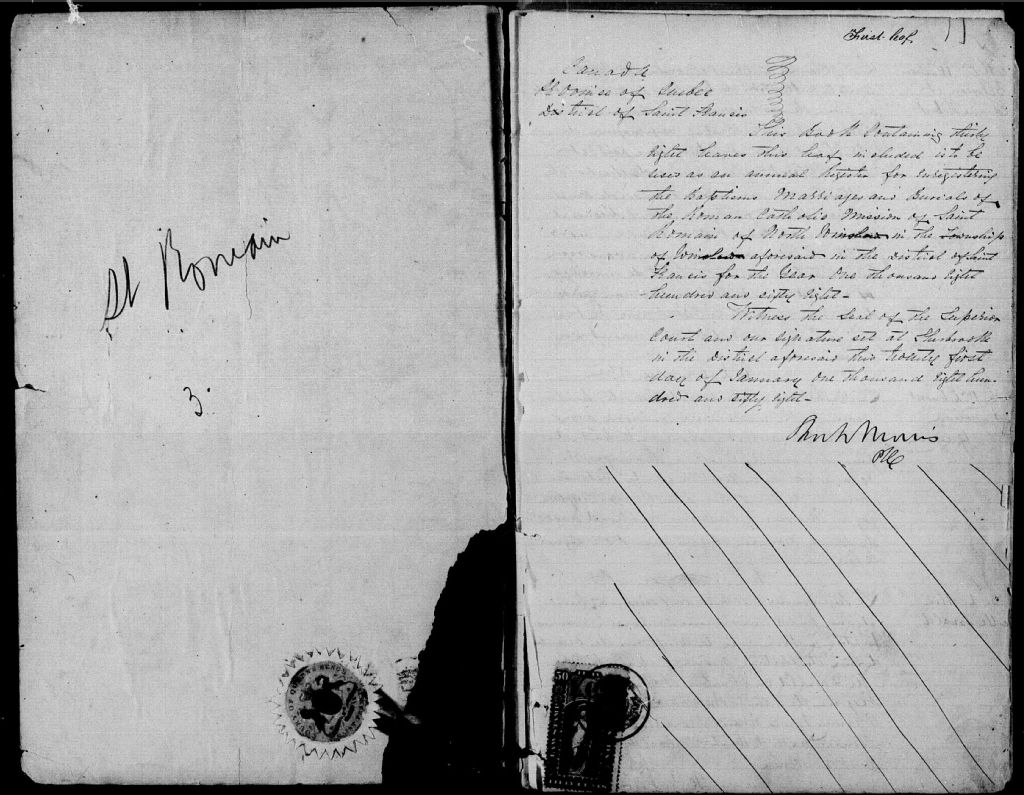 St Romain
3.
First leaf.
Canada
Province of Quebec
District of Saint Francis
This Book Containing thirty
eight leaves this leaf included is to be
used as an annual Register for Enregistering
the Baptisms Marriages and Burials of
the Roman Catholic Mission of Saint
Romain of North Winslow in the Township
of Winslow aforesaid in the District of Saint
Francis for the Year One thousand Eight
hundred and sixty eight –
Witness the Seal of the Superior
Court and our signature set at Sherbrooke
in the District aforesaid this twenty first
day of January One thousand Eight hun-
dred and sixty eight –
Morris
50